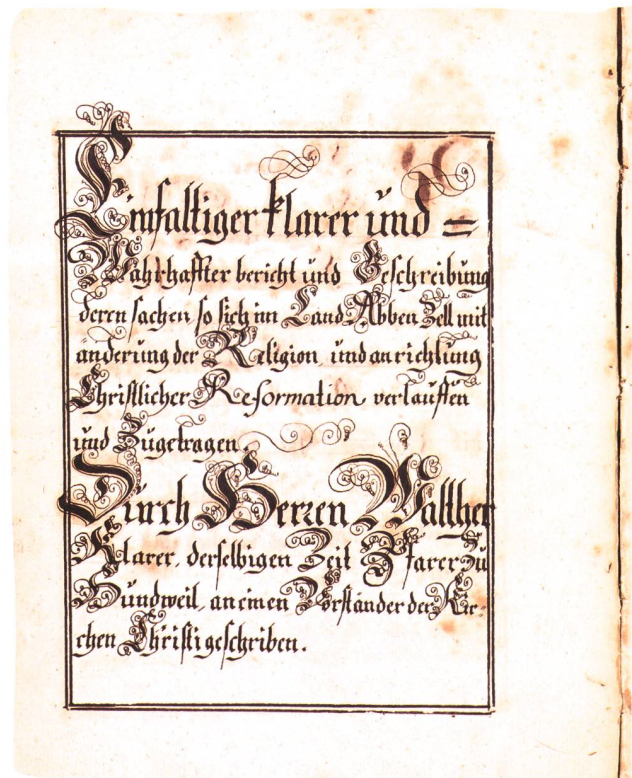 Einfältiger klarer ünd =
Wahrhaffter bericht ünd Beschreibüng
deren sachen, so sich im Land Abben Zell mit
änderüng der Religion, ünd anrichtüng
Christlicher Reformation verlauffen
ünd Zügetragen.
Dürch Herren Walther
Klarer, derselbigen Zeit Pfarer zü
Hündweil, an einen Vorständer der Kir-
chen Christi geschriben.